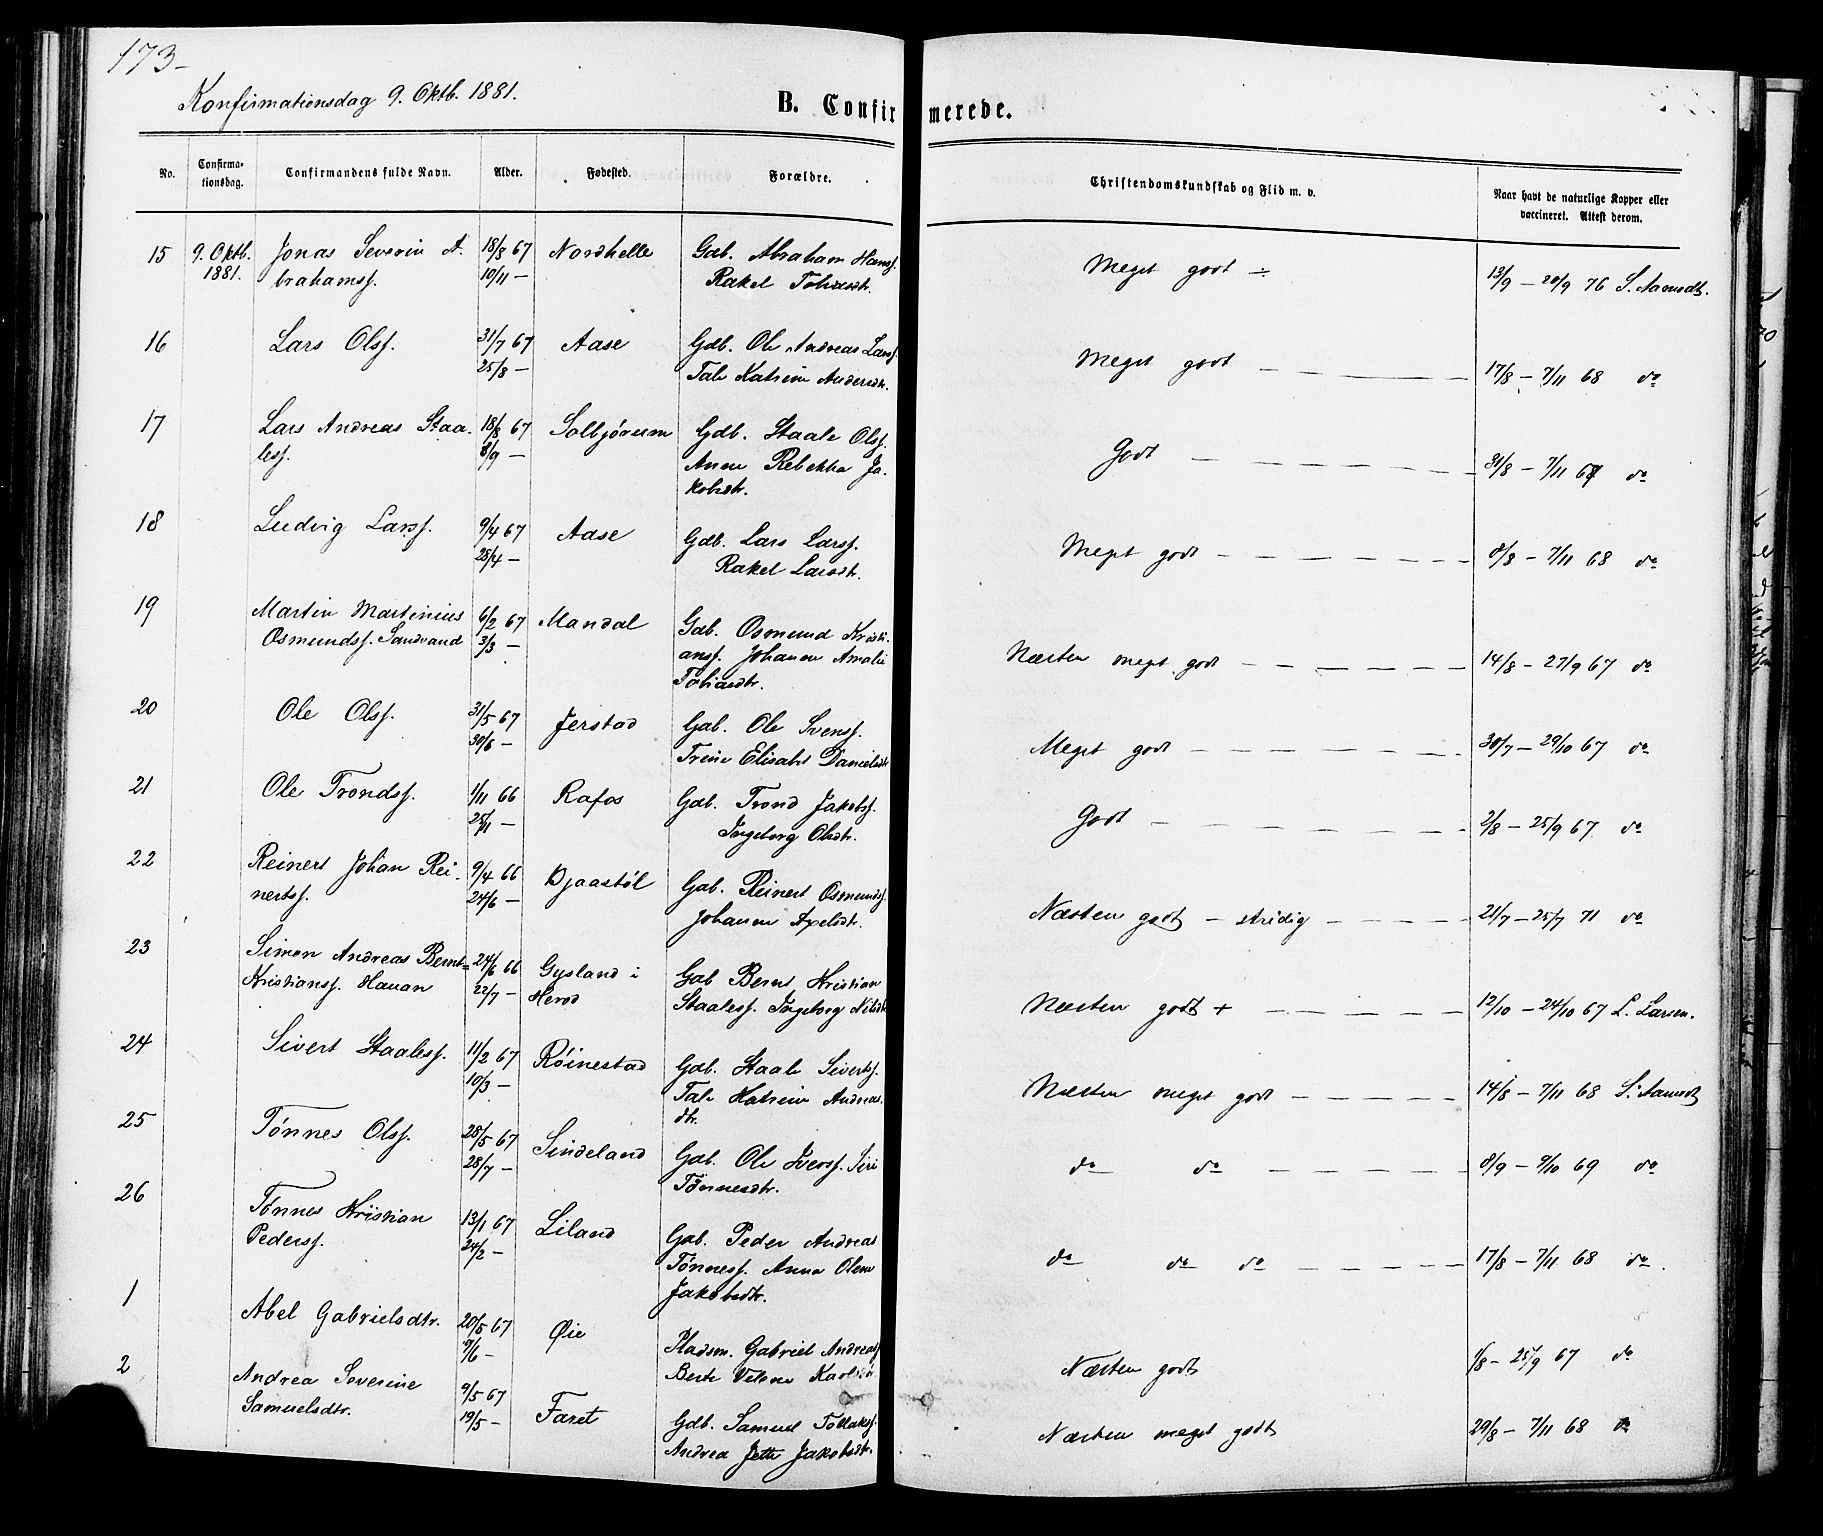 173-
Konfirmationsdag 9. Oktb. 1881.
B. Confirmerede.
No.
Confirma-
tionsdag.
Confirmandens fulde Navn.
Alder.
Fødested.
Forældre.
Christendomskundskab og Flid m. v.
Naar havt de naturlige Kopper eller
vaccineret. Attest derom.
15 9. Oktb. Jonas Severin A- 18/8 67 Nordhelle Gdb. Abraham Hansf.
1881. brahamsf. 10/11 — Rakel Tobiasdt.
Meget godt ÷ 13/9 — 20/9 76 S. Aamodt.
16 Lars Olsf. 31/7 67 Aase Gdb. Ole Andreas Larsf.
25/8 — Tale Katrine Andersdtr.
Meget godt — — — — 17/8 — 7/11 68 do
17 Lars Andreas Staa- 18/8 67 Solbjørum Gdb. Staale Olsf.
lesf. 8/9 — Anne Rebekka Ja-
kobsdtr.
Godt — — — — 31/8 — 7/11 67 do
18 Ludvig Larsf. 9/4 67 Aase Gdb. Lars Larsf.
28/4 — Rakel Larsdtr.
Meget godt — — — — 8/8 — 7/11 68 do
19 Martin Martinius 6/2 67 Mandal Gdb. Osmund Kristi-
Osmundsf. Sandvand 3/3 — ansf. Johanne Amalie
Tobiasdtr.
Næsten meget godt — — — — 14/8 — 27/9 67 do
20 Ole Olsf. 31/5 67 Jerstad Gdb. Ole Svensf.
30/6 — Trine Elisabet Danielsdtr
Meget godt — — — — 30/7 — 29/10 67 do
21 Ole Trondsf. 1/11 66 Rafos Gdb. Trond Jakobsf.
25/11 — Ingeborg Olsdtr.
Godt — — — — 2/8 — 25/9 67. do
22 Reinert Johan Rei- 9/4 66 Djaastøl Gdb. Reinert Osmundsf.
nertsf. 24/6 — Johanne Axelsdtr.
Næsten godt — stridig — — — 21/7 — 25/7 71 do
23 Simon Andreas Bernt- 24/6 66 Gysland i Gdb Bernt Kristian
Kristiansf. Hauan 22/7 — Herod Staalesf. Ingeborg Nilsdtr
Næsten godt + — — — — 12/10 — 24/10 67 L. Larsen.
24 Sivert Staalesf. 11/2 67 Røinestad Gdb. Staale Sivertsf.
10/3 — Tale Katrine Andreas-
dtr.
Næsten meget godt — — — — 14/8 — 7/11 68 S. Aamodt
25 Tønnes Olsf. 28/5 67 Sindeland Gdb. Ole Iversf. Siri
28/7 — Tönnesdtr.
do do — — — — 8/9 — 9/10 69 do
26 Tønnes Kristian 13/1 67 Liland Gdb. Peder Andreas
Pedersf. 24/2 — Tönnesf. Anna Olene
Jakobsdtr.
do do do — — — — 17/8 — 7/11 68 do.
1 Abel Gabrielsdtr. 20/5 67 Øie Pladsm. Gabriel Andreasf
9/6 — Berte Velene
Næsten godt 1/8 — 25/9 67 do
2 Andrea Severine 9/5 67 Faret Gdb. Samuel Tollaksf.
Samuelsdtr. 19/5 — Andrea Jette Jakobsdtr.
Næsten meget godt 29/8 — 7/11 68 do